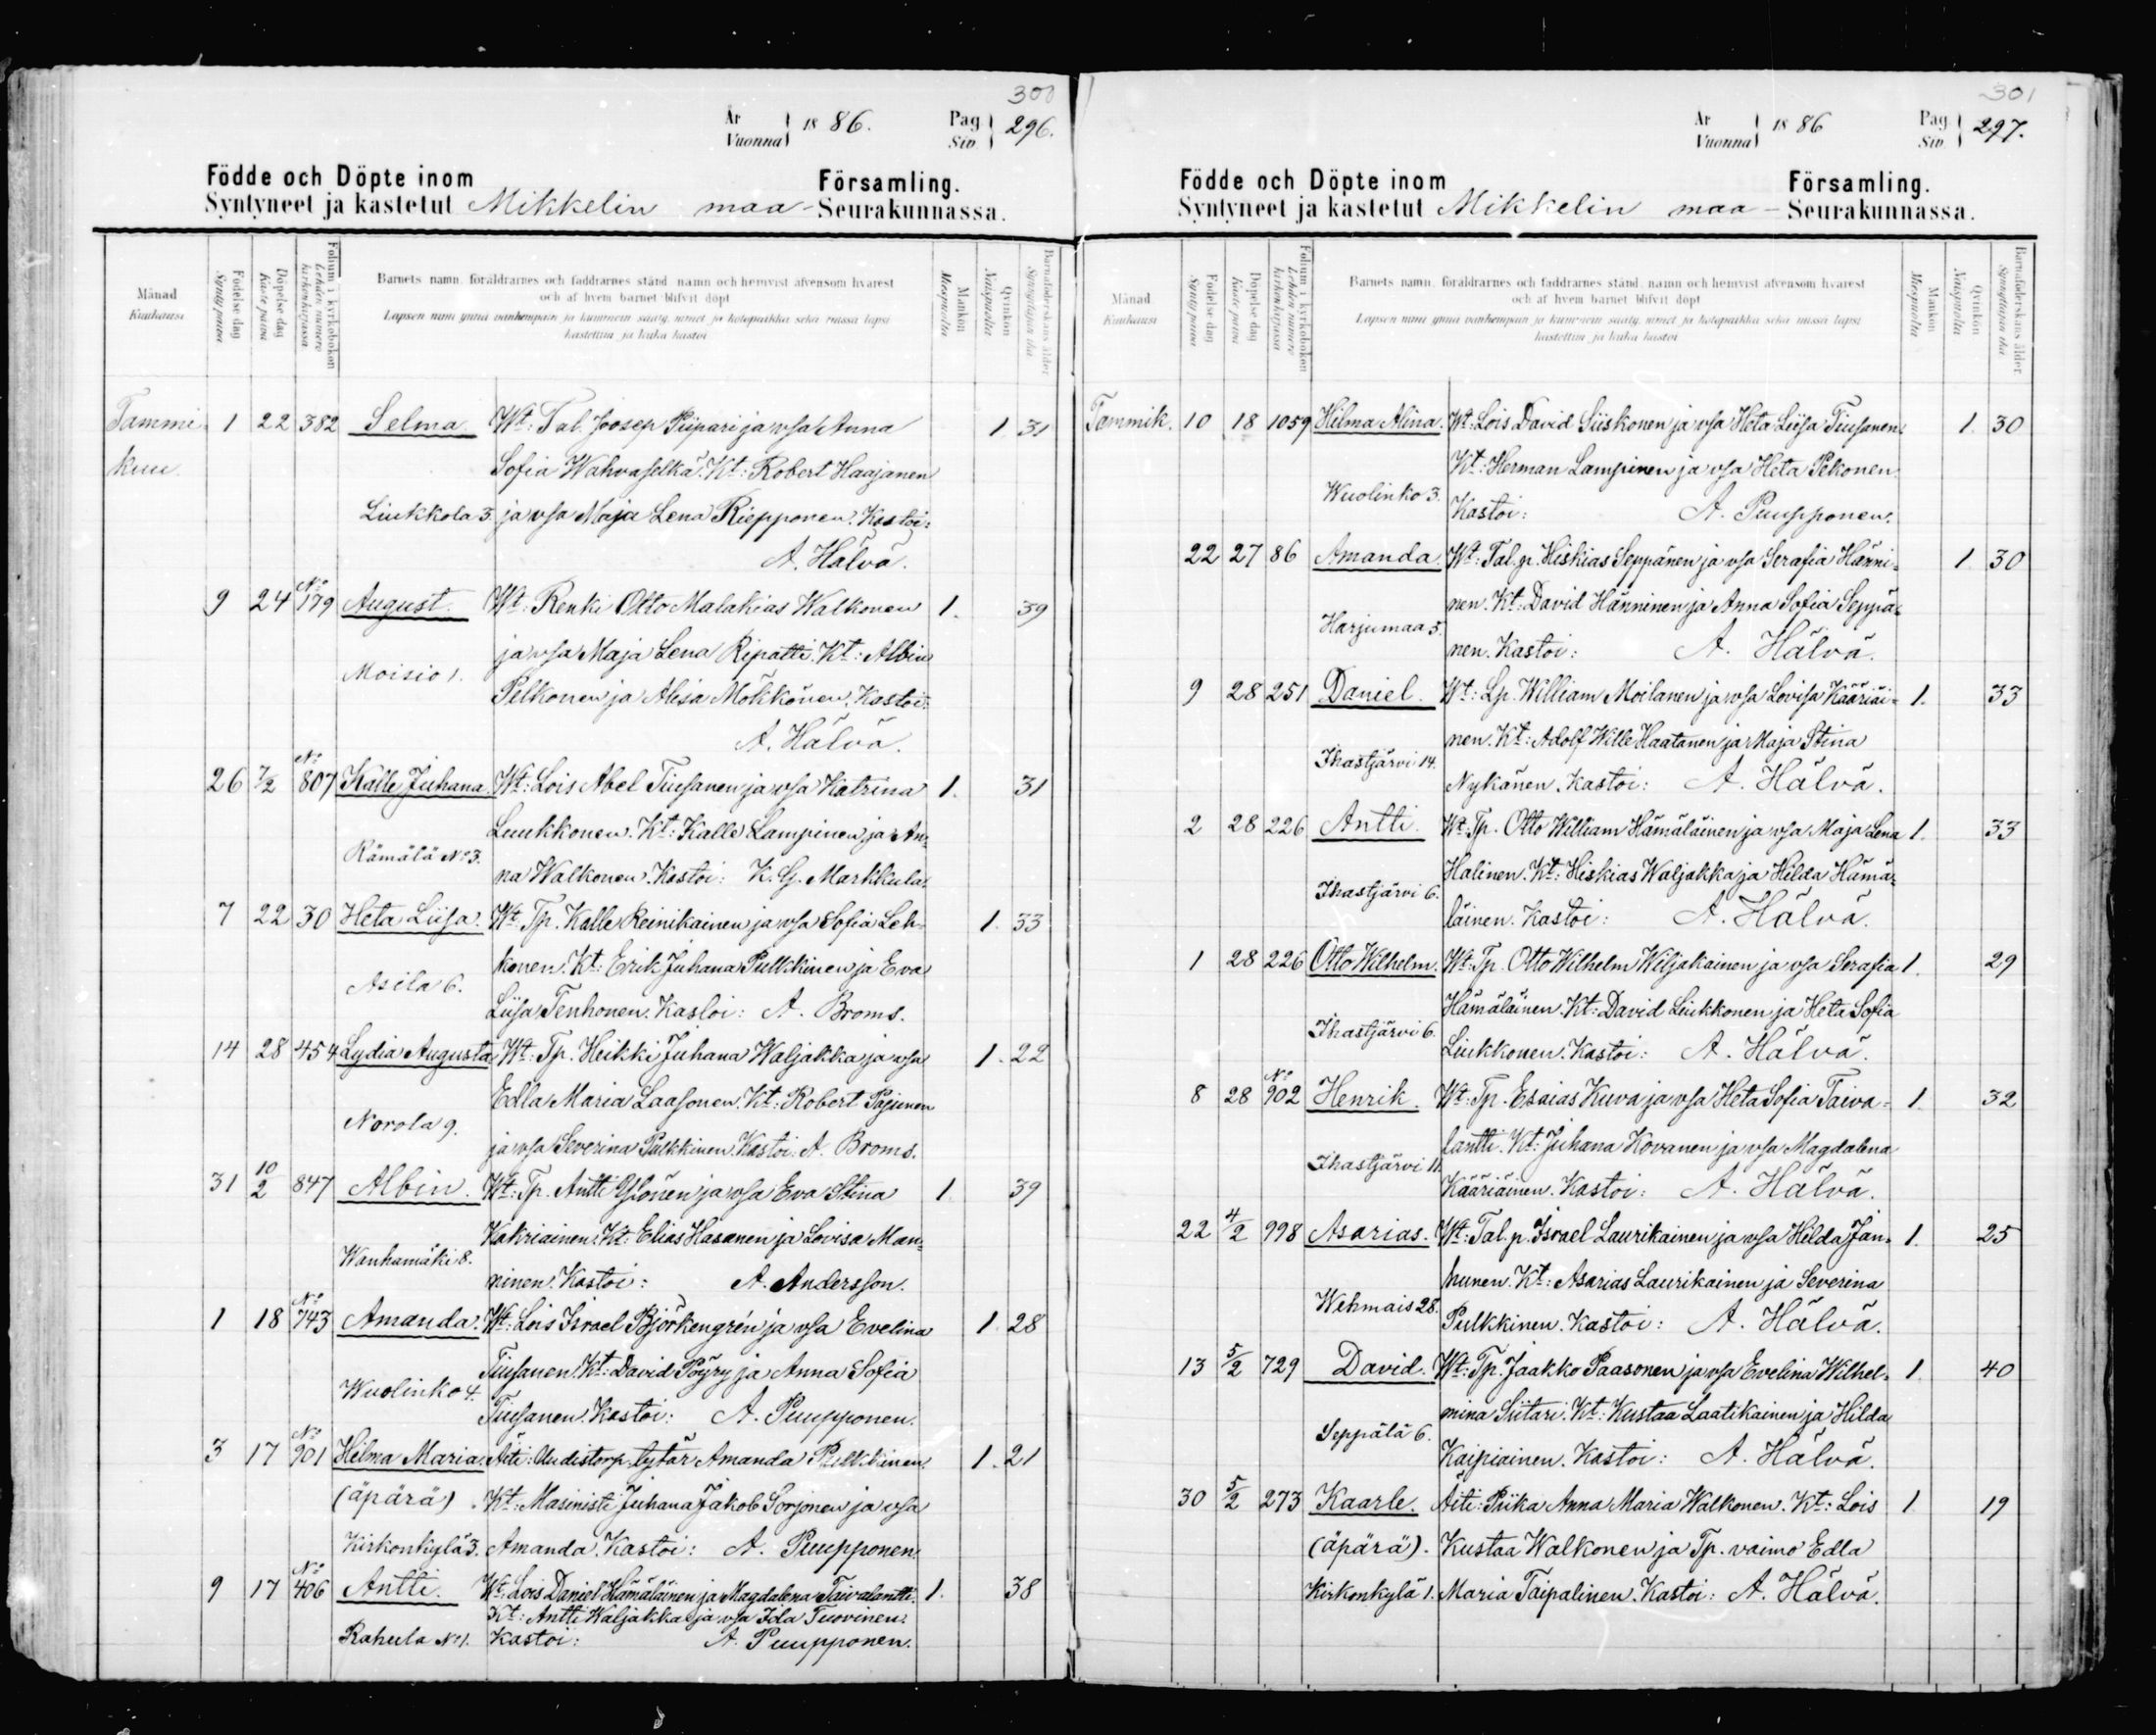 300
År Vuonna 1886. Pag Siv 296.
Födde och Döpte inom Församling.
Syntyneet ja kastetut Mikkelin maa-Seurakunnassa.
Månad Kuukausi
Födelse dag Synty päivä
Döpelse dag Kaste päivä
Folium i kyrkoboken Lehden numero kirkonkirjassa
Barnets namn, föräldrarnes och faddrarnes stånd, namn och hemvist äfvensom hvarest
och af hvem barnet blifvit döpt
Lapsen nimi ynnä vanhempain ja kummein sääty, nimet ja kotopaikka sekä missä lapsi
kastettiin ja kuka kastoi
Mankön Miespuolia
Qvinkön Naispuolia
Barnaföderskans ålder Synnyttäjän ikä
Tammi 1 22 382 Selma. Wt: Tal. Joosep Piipari ja vsa Anna 1 31
kuu. Sofia Wahvaselkä. Kt: Robert Haajanen
Liukkola 3. ja vsa Maja Lena Riepponen. Kastoi:
A. Hälvä.
9 24 No 179 August. Wt: Renki Otto Malakias Walkonen 1. 39
ja vsa Maja Lena Ripatti. Kt: Albin
Moisio 1.
Pelkonen ja Alisa Mökkönen. Kastoi:
A. Hälvä.
26 7/2 No 807 Kalle Juhana. Wt: Lois Abel Tiusanen ja vsa Katrina 1. 31
Luukkonen. Kt: Kalle Lampinen ja An-
Rämälä No 3.
na Walkonen. Kastoi: K. G. Markkula.
7 22 30 Heta Liisa. Wt. Tp. Kalle Reinikainen ja vsa Sofia Leh- 1. 33
konen. Kt: Erik Juhana Pulkkinen ja Eva
Asila 6.
Liisa Tenhonen. Kastoi: A. Broms.
14 28 454 Lydia Augusta Wt: Tp. Heikki Juhana Waljakka ja vsa 1. 22
Edla Maria Laasonen. Kt: Robert Pajunen
Norola 9.
ja vsa Severina Pulkkinen. Kastoi: A. Broms.
31 10/2 847 Albin. Wt: Tp. Antti Ylönen ja vsa Eva Stina 1 39
Kakriainen. Kt: Elias Hasanen ja Lovisa Man-
Wanhamäki 8.
ninen. Kastoi: A. Andersson.
1 18 No 743 Amanda. Wt: Lois Israel Björkengrén ja vsa Evelina 1 28
Tiusanen. Kt: David Pöyry ja Anna Sofia
Wuolinko 4.
Tiusanen. Kastoi: A. Puupponen.
3 17 No 901 Hilma Maria. Äiti: Uudistorp. tytär Amanda Pulkkinen. 1. 21
(äpärä) Kt: Masinisti Juhana Jakob Sorjonen ja vsa
Kirkonkylä 3. Amanda. Kastoi: A. Puupponen.
9 17 No 406 Antti. Wt: Lois Daniel Hämäläinen ja Magdalena Taivalantti. 1. 38
Kt: Antti Waljakka ja vsa Ida Tuovinen.
Rahula No 1. Kastoi: A. Puupponen.
301
År Vuonna 1886 Pag Siv 297.
Födde och Döpte inom Församling.
Syntyneet ja kastetut Mikkelin maa-Seurakunnassa.
Månad Kuukausi
Födelse dag Synty päivä
Döpelse dag Kaste päivä
Folium i kyrkoboken Lehden numero kirkonkirjassa
Barnets namn, föräldrarnes och faddrarnes stånd, namn och hemvist äfvensom hvarest
och af hvem barnet blifvit döpt
Lapsen nimi ynnä vanhempain ja kummein sääty, nimet ja kotopaikka sekä missä lapsi
kastettiin ja kuka kastoi
Mankön Miespuolia
Qvinkön Naispuolia
Barnaföderskans ålder Synnyttäjän ikä
Tammik. 10 18 1059 Hilma Alina. Wt: Lois David Siiskonen ja vsa Heta Liisa Tiusanen. 1 30
Kt: Herman Lampinen ja vsa Heta Pekonen.
Wuolinko 3.
Kastoi: A. Puupponen.
22 27 86 Amanda. Wt: Tal. p. Hiskias Seppänen ja vsa Serafia Hänni- 1 30
nen. Kt: David Hänninen ja Anna Sofia Seppä-
Harjumaa 5.
nen. Kastoi: A. Hälvä.
9 28 251 Daniel. Wt: Lp. William Moilanen ja vsa Lovisa Kääriäi- 1. 33
nen. Kt: Adolf Wille Haatanen ja Maja Stina
Ihastjärvi 14.
Nykänen. Kastoi: A. Hälvä.
2 28 226 Antti. Wt: Tp. Otto William Hämäläinen ja vsa Maja Lena 1. 33
Halinen. Kt: Hiskias Waljakka ja Hilda Hämä-
Ihastjärvi 6.
läinen. Kastoi: A. Hälvä.
1 28 226 Otto Wilhelm. Wt: Tp. Otto Wilhelm Wiljakainen ja vsa Serafia 1. 29
Hämäläinen. Kt: David Liukkonen ja Heta Sofia
Ihastjärvi 6.
Liukkonen. Kastoi: A. Hälvä.
8 28 No 902 Henrik. Wt: Tp. Esaias Kuva ja vsa Heta Sofia Taiva- 1. 32
lantti. Kt: Juhana Kovanen ja vsa Magdalena
Ihastjärvi 11.
Kääriäinen. Kastoi: A. Hälvä.
22 4/2 998 Asarias. Wt: Tal. p. Israel Laurikainen ja vsa Hilda Jän- 1. 25
hunen. Kt: Asarias Laurikainen ja Severina
Wehmais 28.
Pulkkinen. Kastoi: A. Hälvä.
13 5/2 729 David. Wt: Tp. Jaakko Paasonen ja vsa Evelina Wilhel- 1 40
mina Siitari. Kt: Kustaa Laatikainen ja Hilda
Seppälä 6.
Kaipiainen. Kastoi: A. Hälvä.
30 5/2 273 Kaarle. Äiti: Piika Anna Maria Walkonen. Kt: Lois 1 19
(äpärä). Kustaa Walkonen ja Tp. vaimo Edla
Kirkonkylä 1. Maria Taipalinen. Kastoi: A. Hälvä.